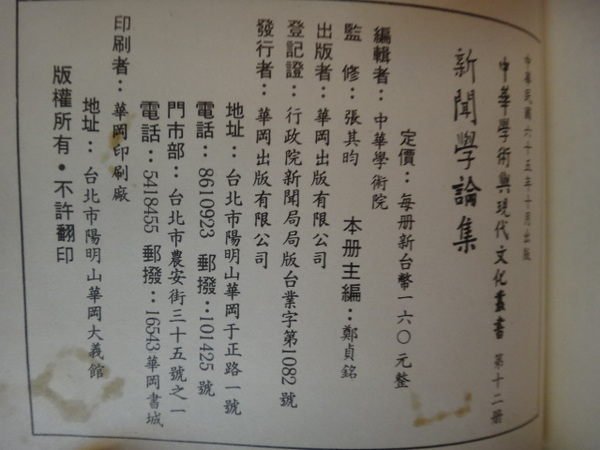 中華民國六十五年十月出版
中華學術與現代文化叢書 第十二册
新聞學論集
定價：每册新台幣一六〇元整
編輯者：中華學術院
監修：張其昀 本册主編：鄭貞銘
出版者：華岡出版有限公司
登記證：行政院新聞局局版台業字第1082號
發行者：華岡出版有限公司
地址：台北市陽明山華岡于正路一號
電話：8610923 郵撥：101425號
門市部：台北市農安街三十五號之一
電話：5418455 郵撥：16543華岡書城
印刷者：華岡印刷廠
地址：台北市陽明山華岡大義館
版權所有・不許翻印